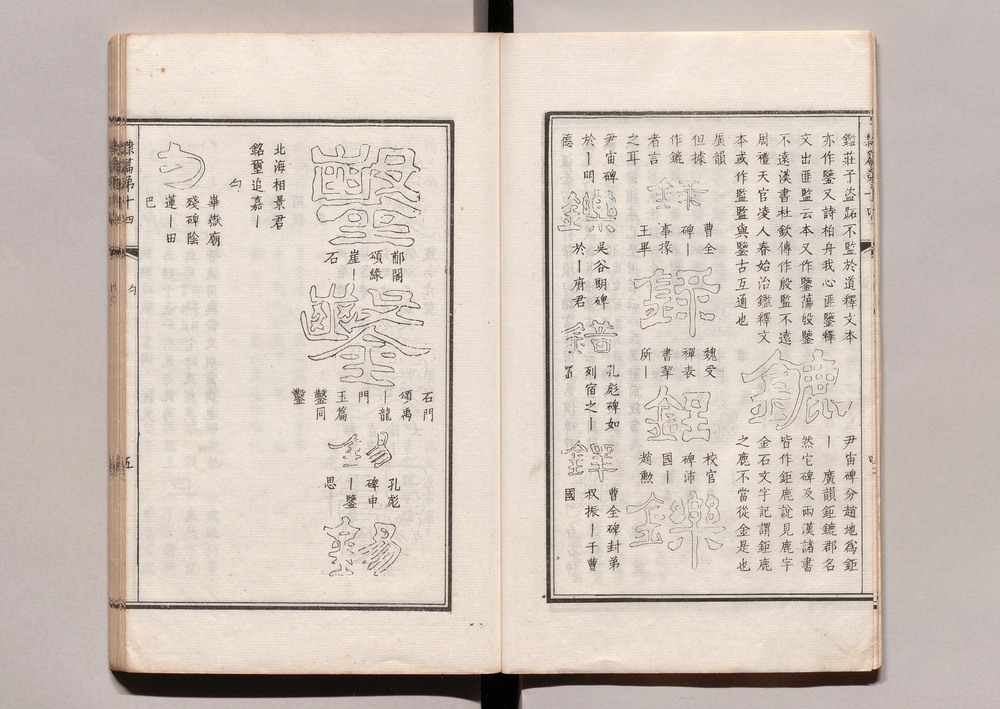 鑑莊子盜跖不監於道釋文本
亦作鑒又詩柏舟我心匪鑒釋
文出匪監云本又作鑒蕩殷鑒
不遠漢書杜欽傳作殷監不遠
周禮天官凌人春始治鑑釋文
本或作監監與鑒古互通也
鏕
尹宙碑分趙地爲鉅
丨 廣韻鉅鏕郡名
然它碑及兩漢諸書
皆作鉅鹿說見鹿字
金石文字記謂鉅鹿
之鹿不當從金是也
廣韻
但據
作鏕
者言
之耳
錄
曹全
碑丨
事掾
王畢
錄
魏受
禪表
書挈
所丨
銍
校官
碑沛
國丨
趙勳
鑠
尹宙碑
於丨明
德
鑠
吳谷朗碑
於丨府君
錯
孔彪碑如
列宿之丨
置
鐸
曹全碑封弟
叔振丨于曹
國
鑿
郙閣
頌緣
崖丨
石
鑿
石門
頌禹
丨龍
門
玉篇
鑿同
鑿
錫
孔彪
碑申
丨鑒
思
錫
北海相景君
銘璽追嘉丨
勹
勺
華嶽廟
殘碑陰
蓮丨田
巴
隸篇第十四
勹
五